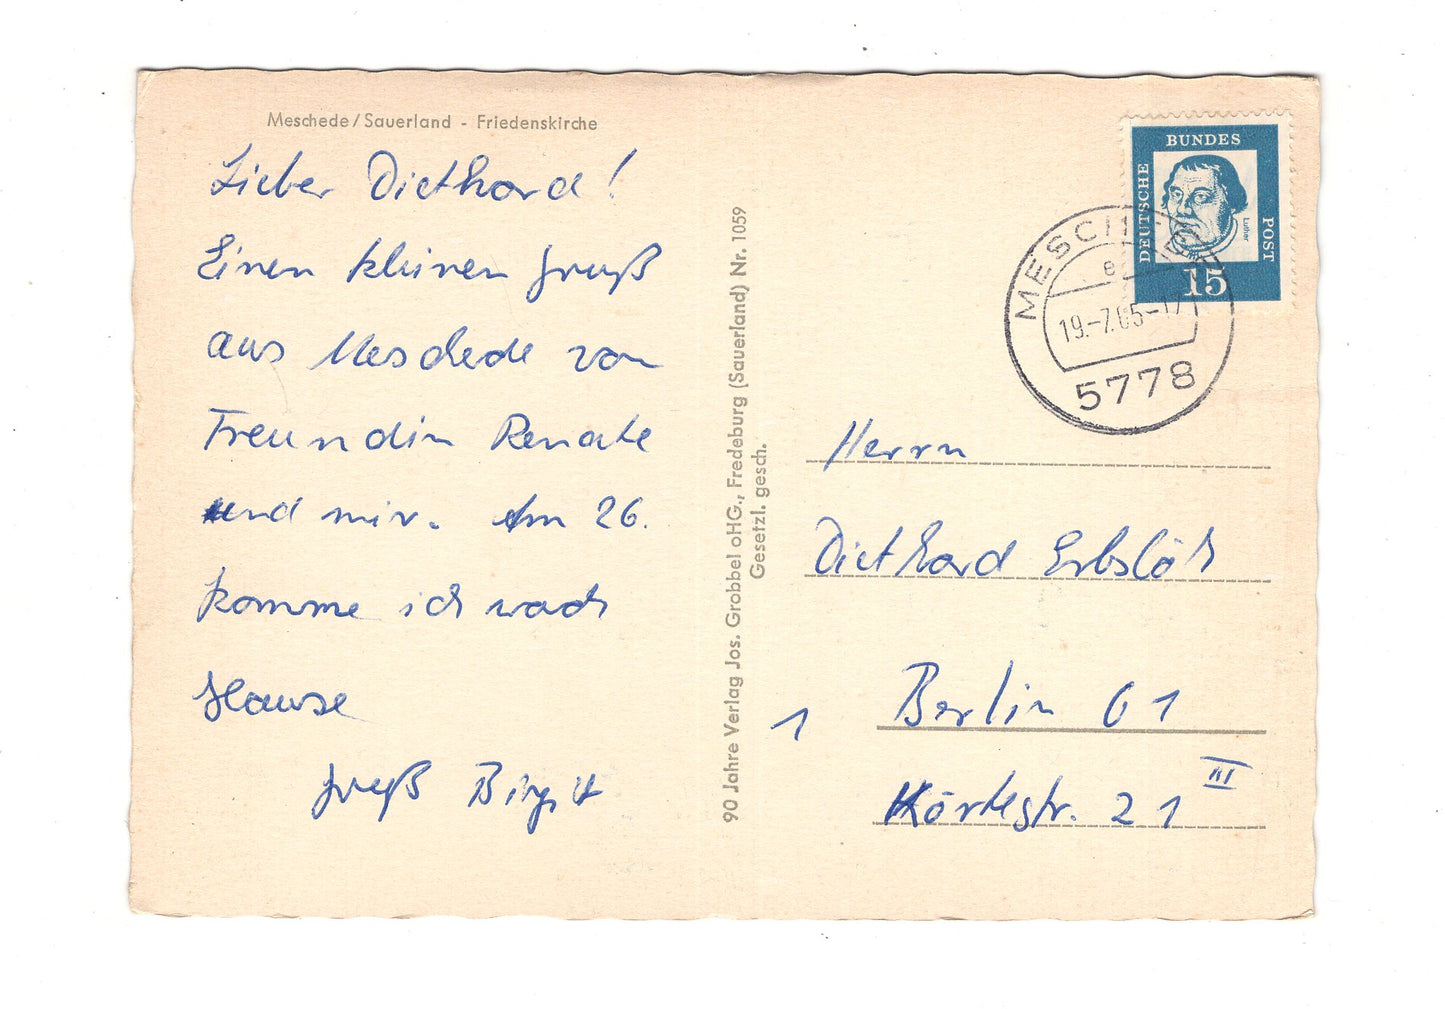 Meschede/Sauerland - Friedenskirche
Lieber Diethard!
Einen kleinen Gruß
aus Meschede von
Freundin Renate
und mir. Am 26.
komme ich nach
Hause
Gruß Birgit
90 Jahre Verlag Jos. Grobbel oHG., Fredeburg (Sauerland) Nr. 1059
Gesetzl. gesch.
DEUTSCHE
BUNDES
POST
Luther
15
MESCHEDE
e
19.-7.65-17
5778
Herrn
Diethard Erbslöh
1
Berlin 61
Körtestr. 21 III